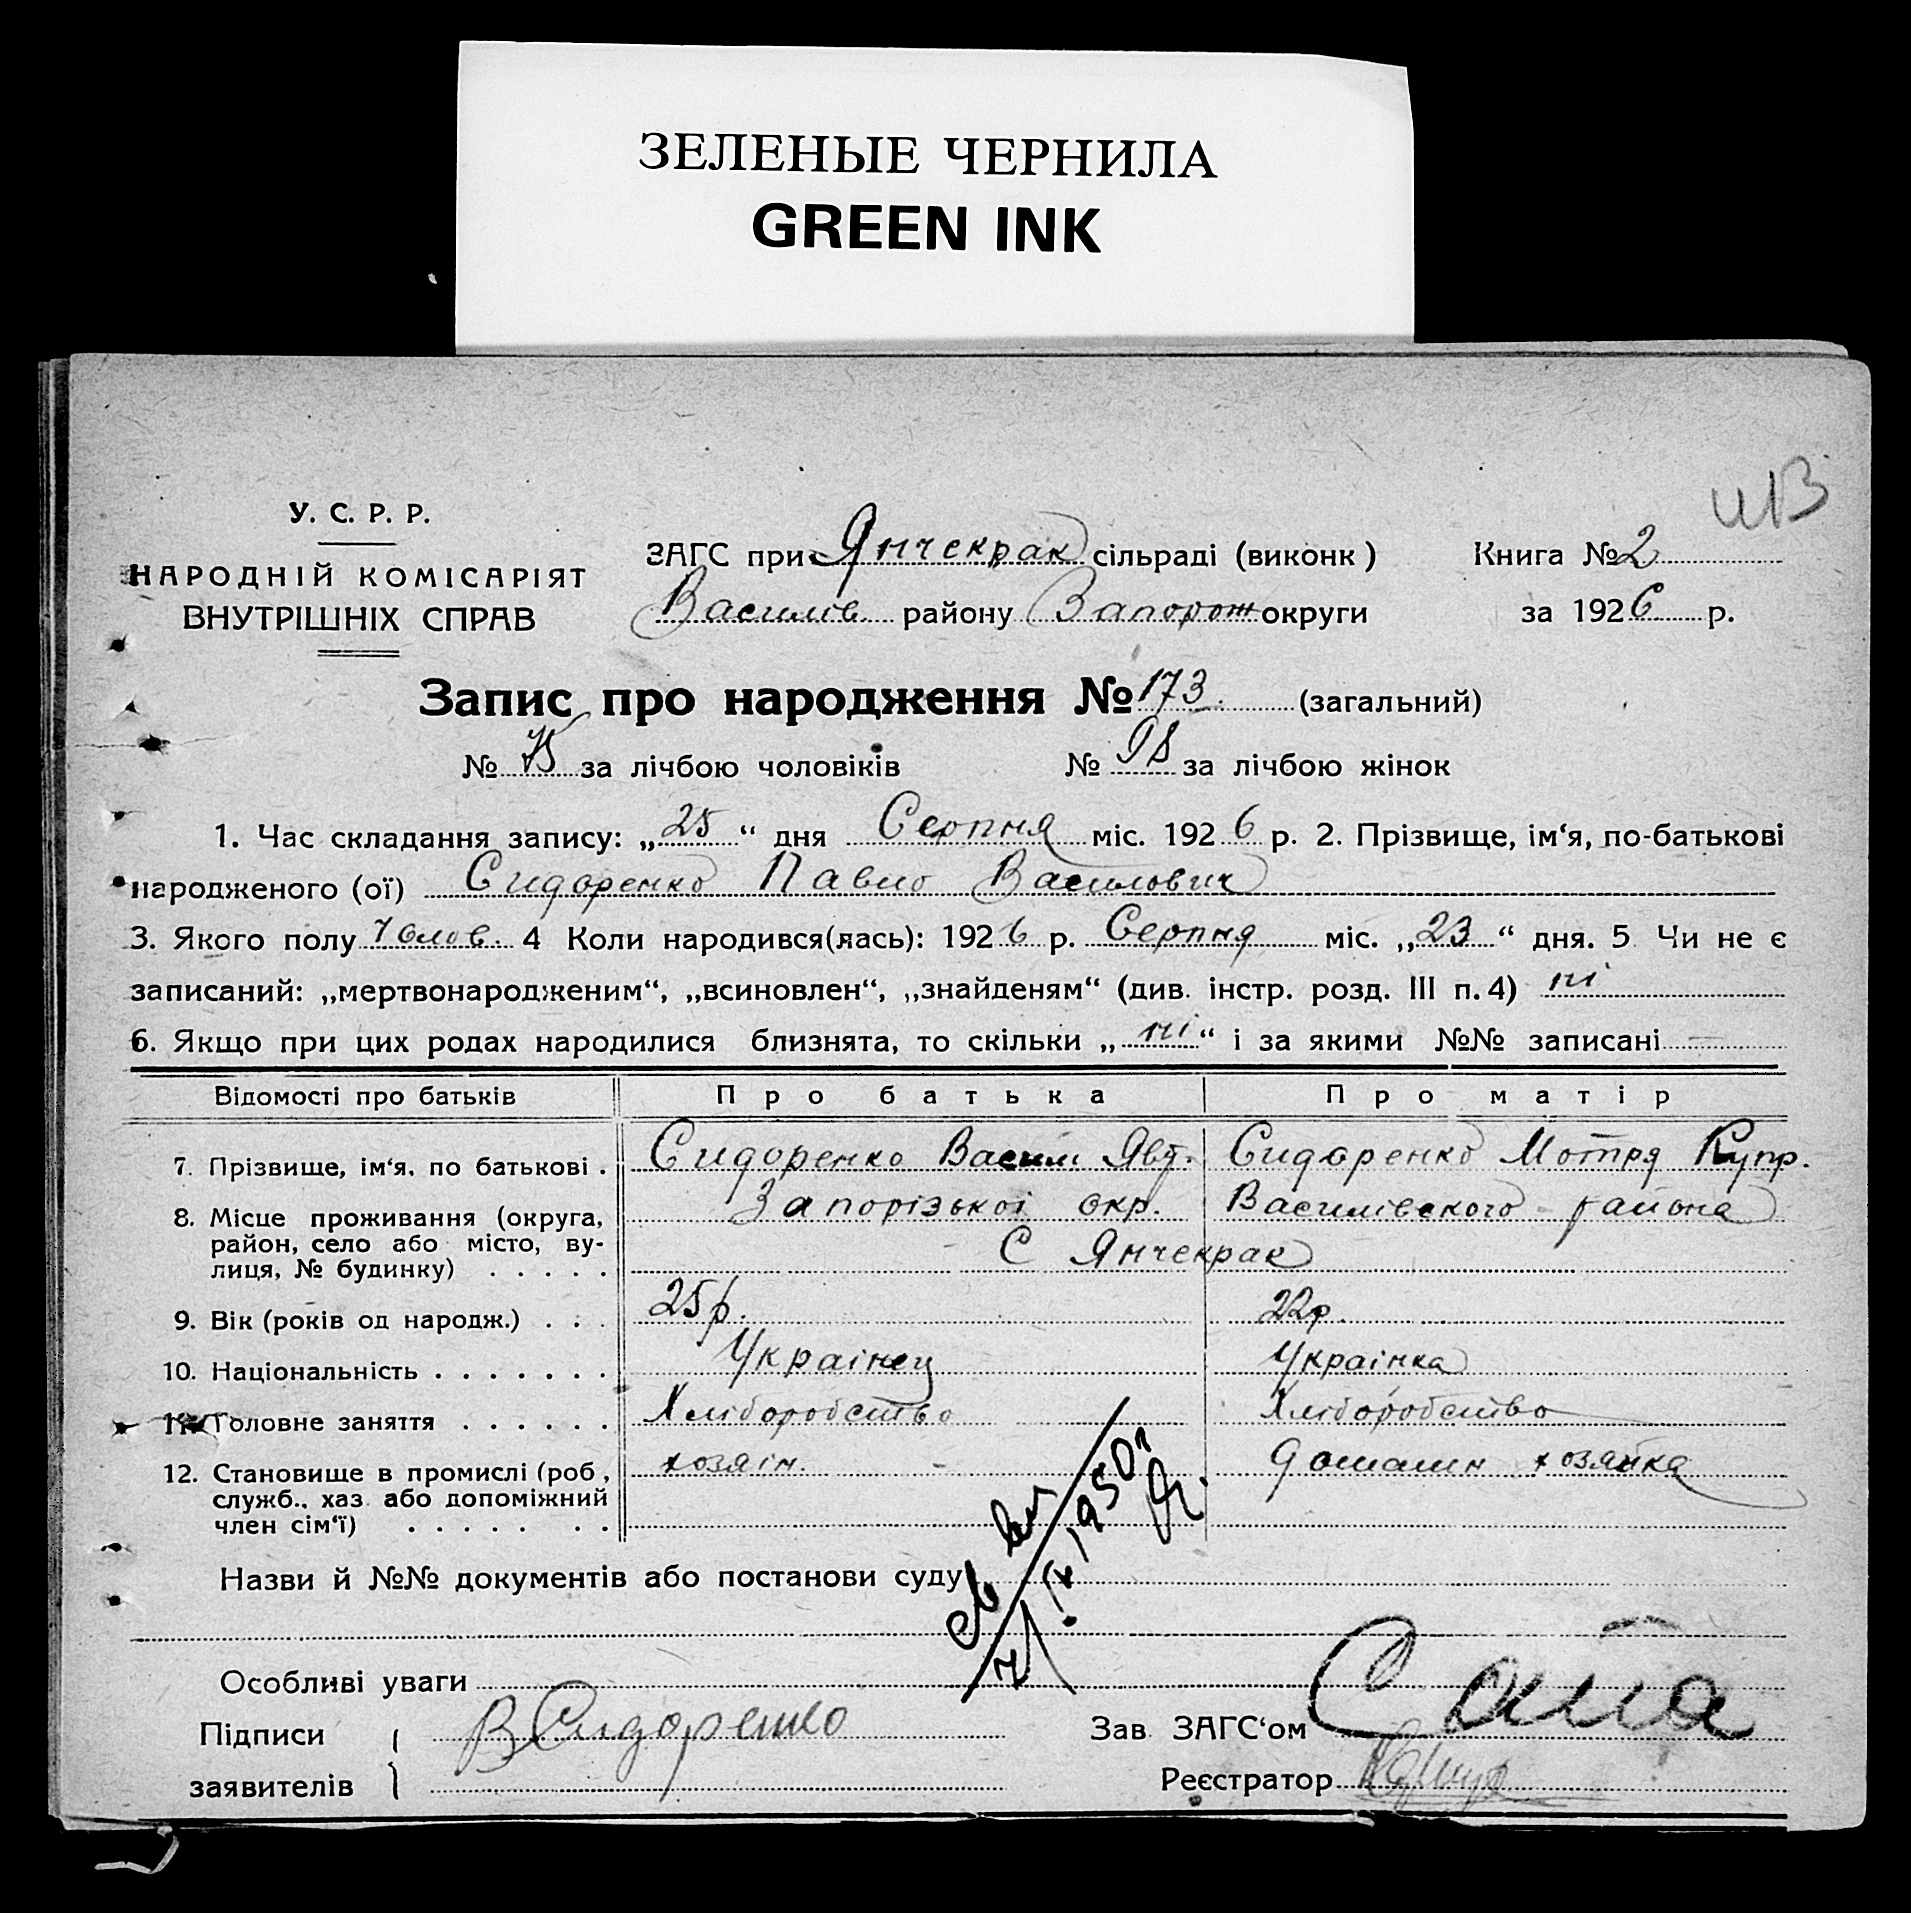 ЗЕЛЕНЫЕ ЧЕРНИЛА
GREEN INK
ИВ
У. С. Р. Р.
НАРОДНІЙ КОМІСАРІЯТ
ВНУТРІШНІХ СПРАВ
ЗАГС при Янчекрак сільраді (виконк)
Василів. району Запорож округи
Книга № 2
за 1926 р.
Запис про народження № 173. (загальний)
№ 75 за лічбою чоловіків № 98 за лічбою жінок
1. Час складання запису: „25“ дня Серпня міс. 1926 р. 2. Прізвище, ім‘я, по-батькові
народженого (ої) Сидоренко Павло Василович
3. Якого полу Чолов. 4 Коли народився(лась): 1926 р. Серпня міс. „23“ дня. 5 Чи не є
записаний: „мертвонародженим“, „всиновлен“, „знайденям“ (див. інстр. розд. III п. 4) ні
6. Якщо при цих родах народилися близнята, то скільки „ні“ і за якими №№ записані —
Відомості про батьків Про батька Про матір
7. Прізвище, ім‘я, по батькові . Сидоренко Васили Явт. Сидоренко Мотря Купр.
8. Місце проживання (округа, Запорізької окр. Василівского района
район, село або місто, ву-
лиця, № будинку) . . . . . С Янчекрак
9. Вік (років од народж.) . . . 25 р. 22 р.
10. Національність . . . . . . . Українец Українка
11. Головне заняття . . . . . . Хліборобство Хліборобство
12. Становище в промислі (роб, хозяін. домашн хозяйка
служб., хаз. або допоміжний
член сім‘ї) . . . . . . .
IX 1950 г
Назви й №№ документів або постанови суду
Особливі уваги
Підписи
заявителів
В Сидоренко
Зав. ЗАГС‘ом
Реєстратор